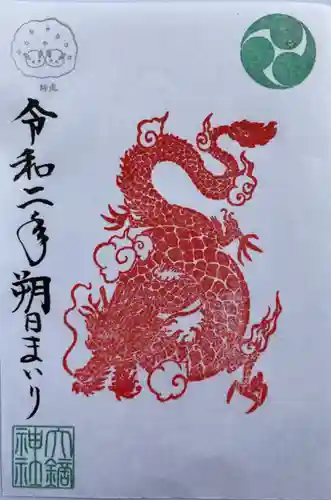 令和二年朔日まいり
大鏑
神社